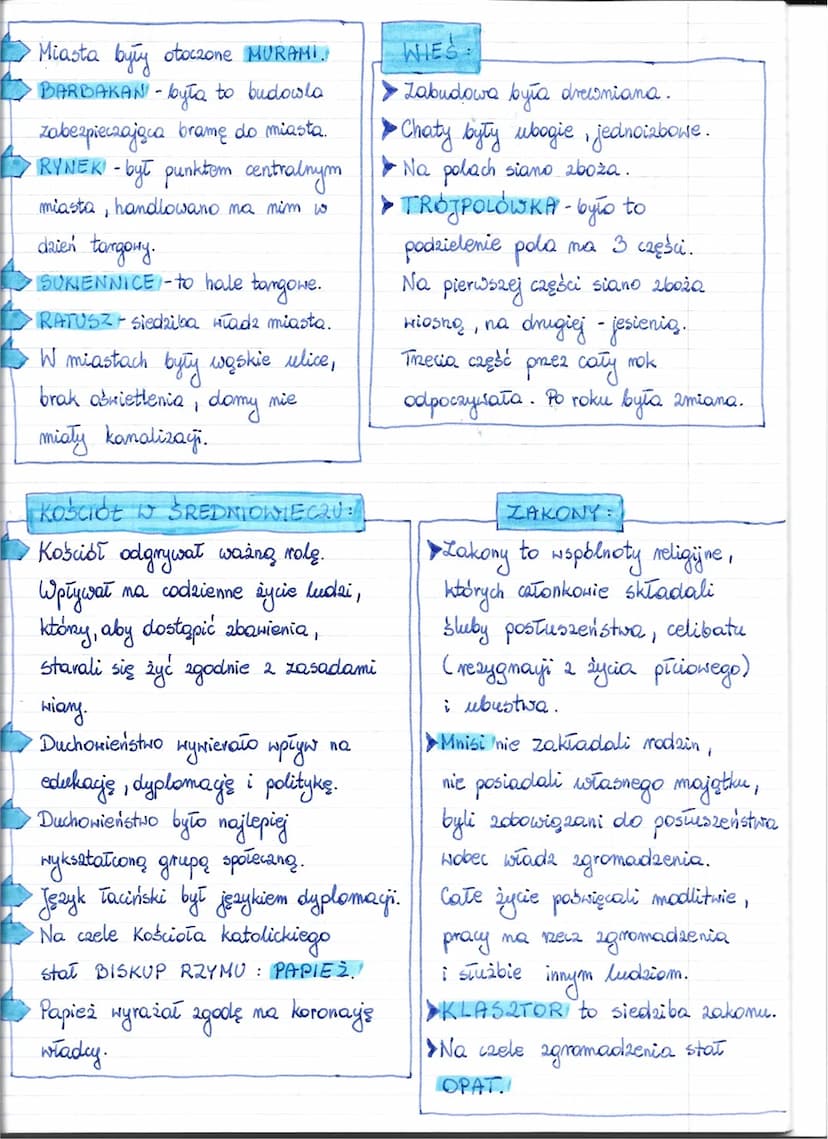 Miasta były otoczone MURAMI.
BARBAKAN - była to budowla
zabezpieczająca bramę do miasta.
RYNEK - był punktem centralnym
miasta, handlowano na nim w
dzień targowy.
SUKIENNICE - to hale targowe.
RATUSZ - siedziba władz miasta.
W miastach były wąskie ulice,
brak oświetlenia, domy nie
miały kanalizacji.
WIEŚ:
Zabudowa była drewniana.
Chaty były ubogie, jednoizbowe.
Na polach siano zboża.
TRÓJPOLÓWKA - było to
podzielenie pola na 3 części.
Na pierwszej części siano zboża
wiosną, na drugiej - jesienią.
Trzecia część przez cały rok
odpoczywała. Po roku była zmiana.
KOŚCIÓŁ W ŚREDNIOWIECZU:
Kościół odgrywał ważną rolę.
Wpływał na codzienne życie ludzi,
którzy, aby dostąpić zbawienia,
starali się żyć zgodnie z zasadami
wiary.
Duchowieństwo wywierało wpływ na
edukację, dyplomację i politykę.
Duchowieństwo było najlepiej
wykształconą grupą społeczną.
Język łaciński był językiem dyplomacji.
Na czele Kościoła katolickiego
stał BISKUP RZYMU: PAPIEŻ.
Papież wyrażał zgodę na koronację
władcy.
ZAKONY:
Zakony to wspólnoty religijne,
których członkowie składali
śluby posłuszeństwa, celibatu
(rezygnacji z życia płciowego)
i ubustwa.
Mnisi nie zakładali rodzin,
nie posiadali własnego majątku,
byli zobowiązani do posłuszeństwa
wobec władz zgromadzenia.
Całe życie poświęcali modlitwie,
pracy na rzecz zgromadzenia
i służbie innym ludziom.
KLASZTOR to siedziba zakonu.
Na czele zgromadzenia stał
OPAT.